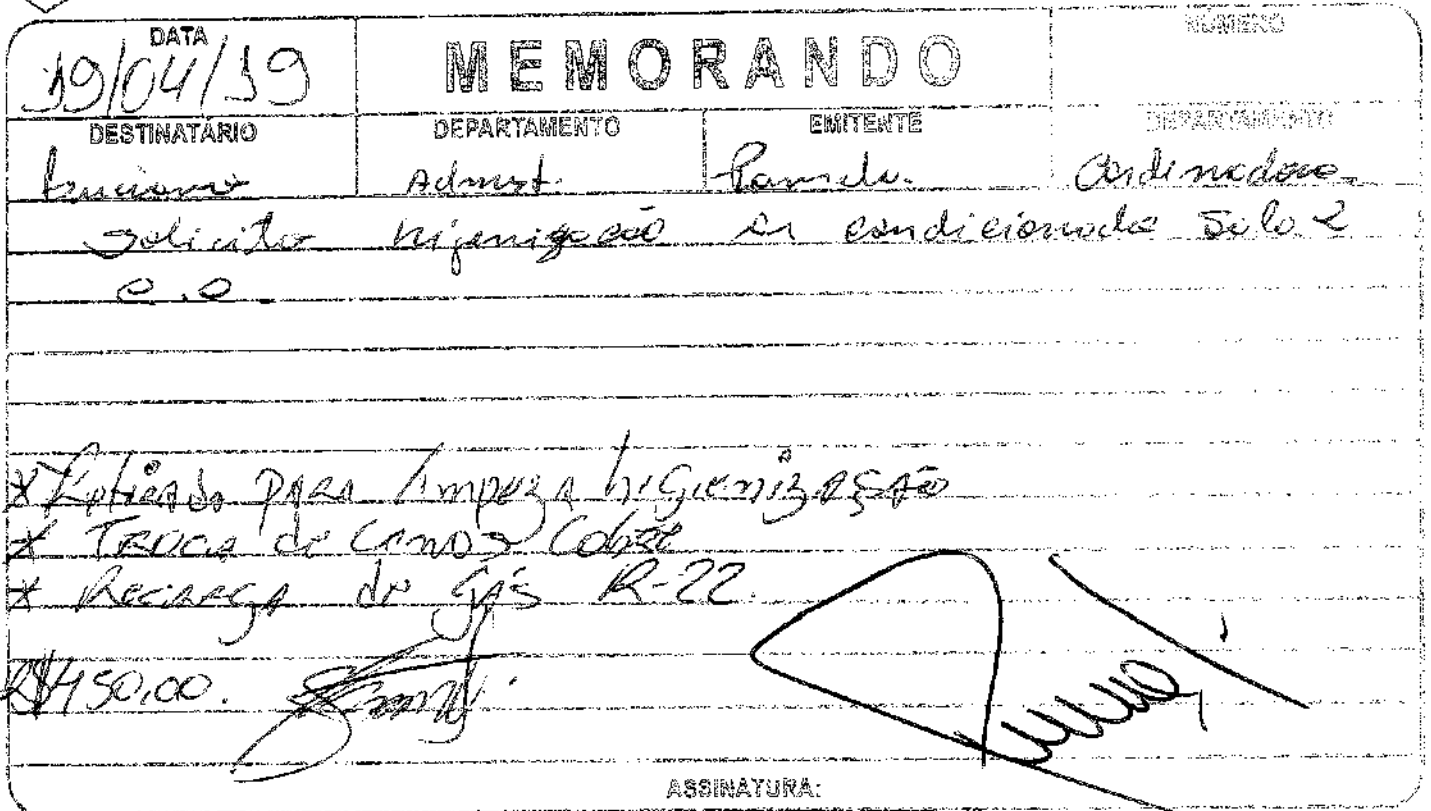 DATA
19/04/19
MEMORANDO
NÚMERO
DESTINATÁRIO
DEPARTAMENTO
EMITENTE
DEPARTAMENTO
Luciano Admst. Pamela. Cordinadora
Solicito higienização ar condicionado Sala 2
C.O
* Retirado PARA limpeza higienização
* TROCA de CANOS Cobre
* RECARGA de GÁS R-22.
R$450,00.
ASSINATURA: